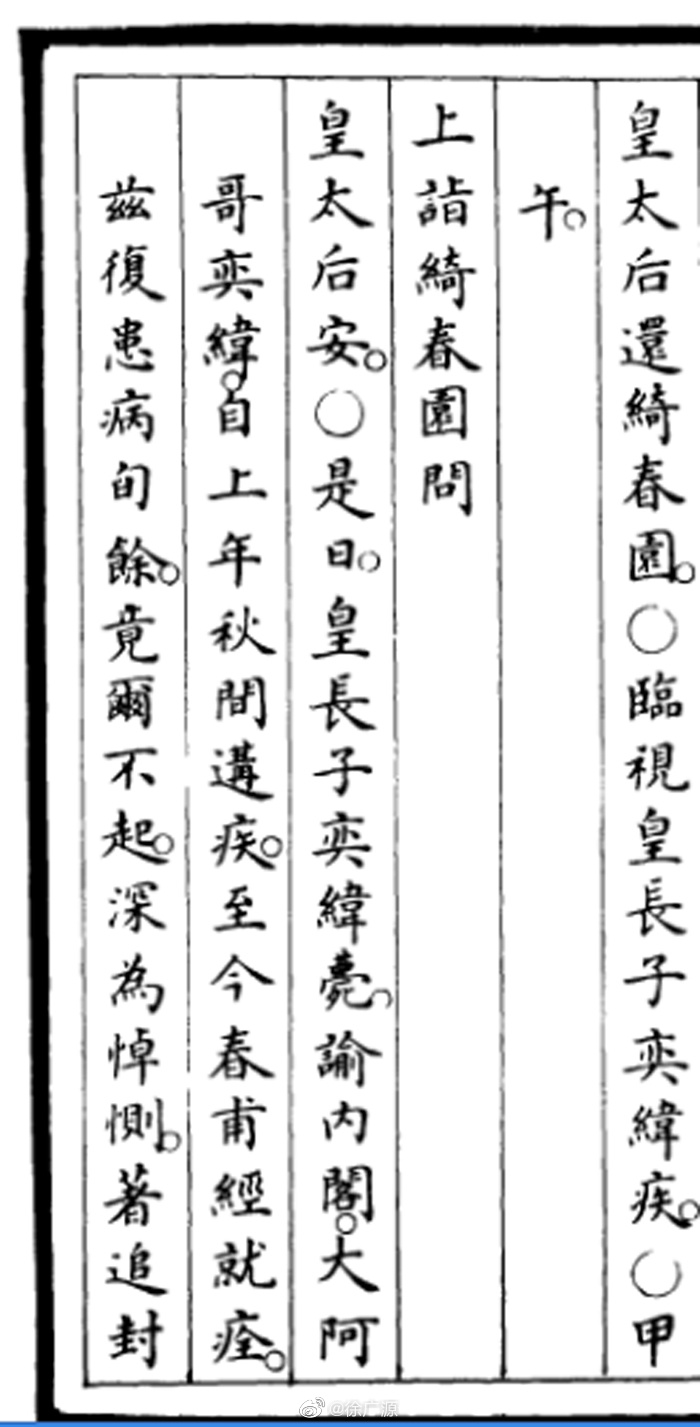 皇太后還綺春園。○臨視皇長子奕緯疾。○甲
午。
上詣綺春園問
皇太后安。○是日。皇長子奕緯薨。諭内閣。大阿
哥奕緯。自上年秋間遘疾。至今春甫經就痊。
茲復患病旬餘。竟爾不起。深為悼惻。著追封
@徐广源